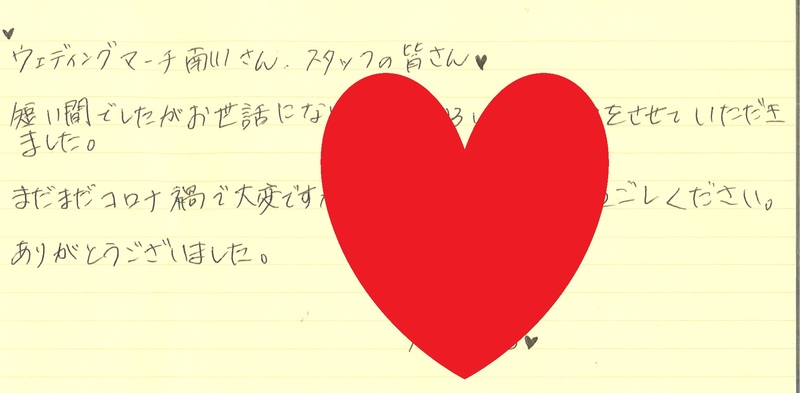 ♥
ウェディングマーチ南川さん、スタッフの皆さん♥
短い間でしたがお世話にな をさせていただき
ました。
まだまだコロナ禍で大変です ごしください。
ありがとうございました。
♥